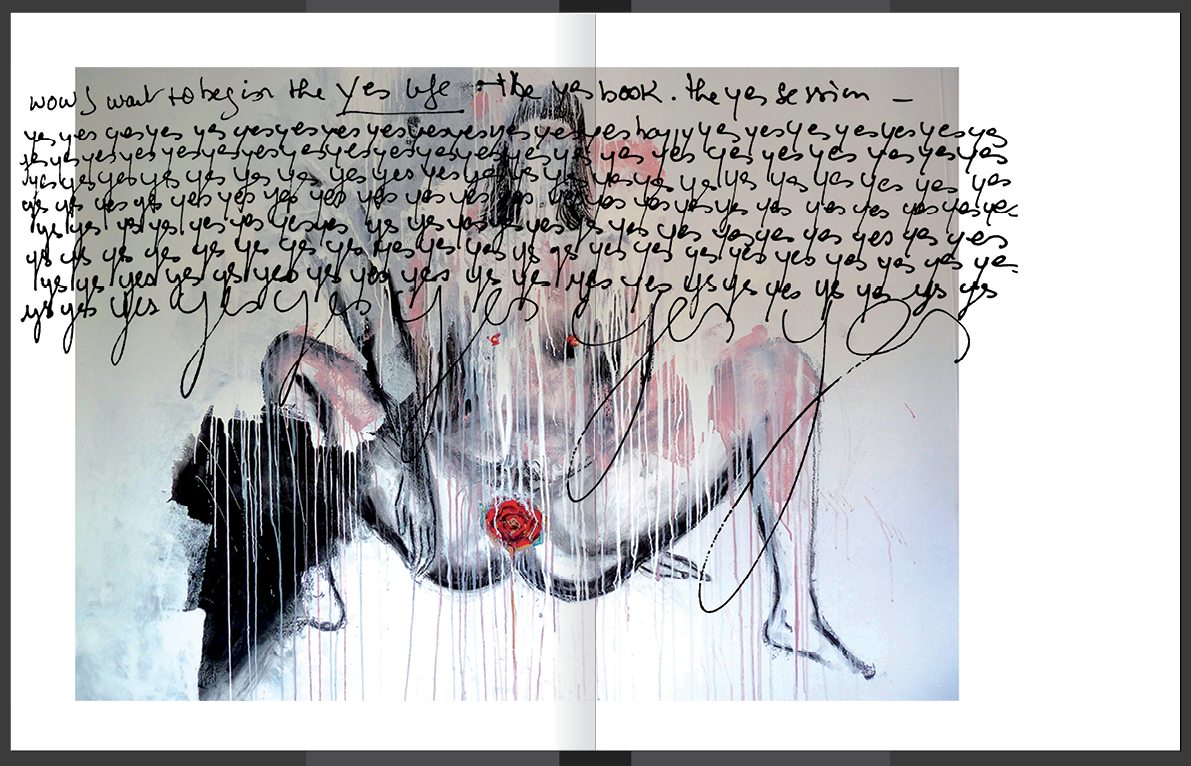 wow I want to begin the yes life - the yes book. the yes session –
yes yes yes yes yes yes yes yes yes yes yes yes yes yes happy yes yes yes yes yes yes yes
yes yes yes yes yes yes yes yes yes yes yes yes yes yes yes yes yes yes yes yes yes yes
yes yes yes yes yes yes yes yes yes yes yes yes yes yes yes yes yes yes yes yes yes yes
yes yes yes yes yes yes yes yes yes yes yes yes yes yes yes yes yes yes yes yes yes yes yes
yes yes yes yes yes yes yes yes yes yes yes yes yes yes yes yes yes yes yes yes yes yes
yes yes yes yes yes yes yes yes yes yes yes yes yes yes yes yes yes yes yes yes yes yes
yes yes yes yes yes yes yes yes yes yes yes yes yes yes yes yes yes yes yes yes
yes yes yes yes yes yes yes yes